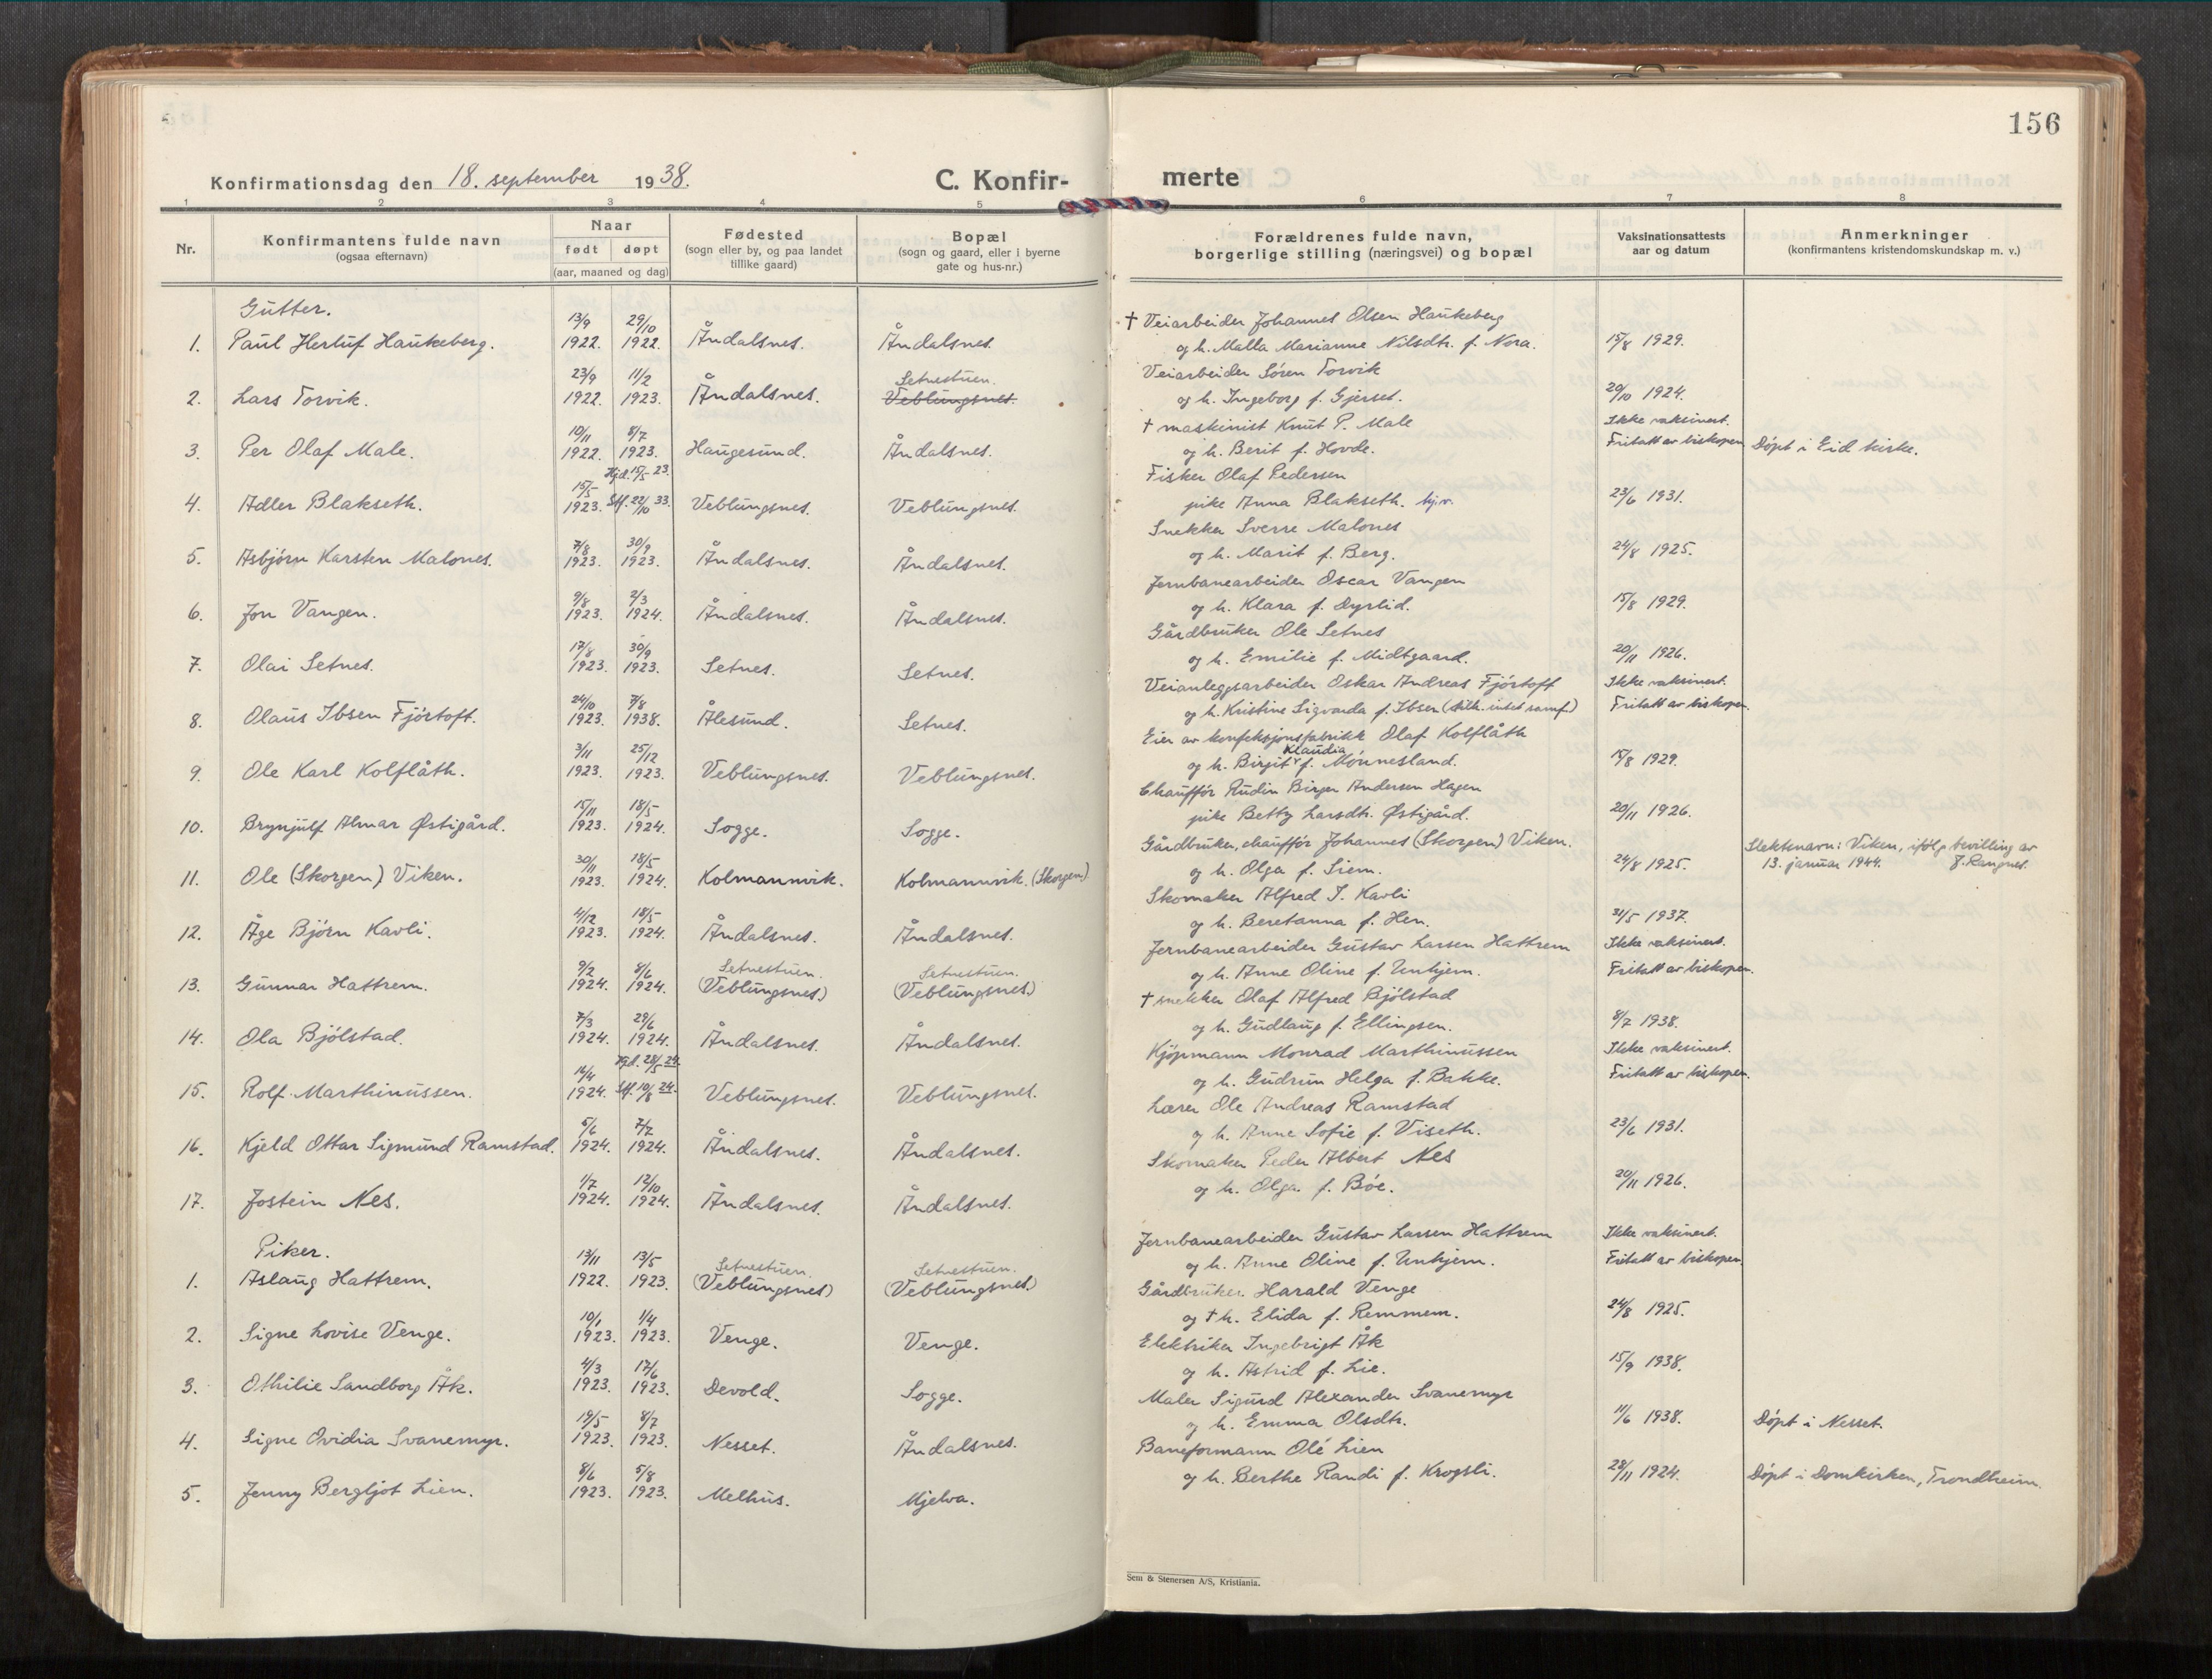 156
Konfirmationsdag den 18. september 1938.
C. Konfir-
merte
1 2 3 4 5 6 7 8
Nr.
Konfirmantens fulde navn
(ogsaa efternavn)
Naar
født døpt
(aar, maaned og dag)
Fødested
(sogn eller by, og paa landet
tillike gaard)
Bopæl
(sogn og gaard, eller i byerne
gate og hus-nr.)
Forældrenes fulde navn,
borgerlige stilling (næringsvei) og bopæl
Vaksinationsattests
aar og datum
Anmerkninger
(konfirmantens kristendomskundskap m. v.)
Gutter.
13/9 29/10 † Veiarbeider Johannes Olsen Haukeberg
1. Paul Herluf Haukeberg. 1922. 1922. Åndalsnes. Åndalsnes. og h. Malla Marianne Nilsdtr. f. Nora. 15/8 1929.
23/9 11/2 Setnestuen. Veiarbeider Søren Torvik
2. Lars Torvik. 1922. 1923. Åndalsnes. Veblungsnes. og h. Ingeborg f. Gjerset. 20/10 1924.
10/11 8/7 † maskinist Knut P. Male Ikke vaksinert.
3. Per Olaf Male. 1922. 1923. Haugesund. Åndalsnes. og h. Berit f. Hovde. Fritatt av biskopen. Døpt i Eid kirke.
15/5 Hjd. 15/5 23. Fisker Olaf Pedersen
4. Adler Blakseth. 1923. Stf. 22/10 33. Veblungsnes. Veblungsnes. pike Anna Blakseth. hj.v. 23/6 1931.
7/8 30/9 Snekker Sverre Malones
5. Asbjørn Karsten Malones. 1923. 1923. Åndalsnes. Åndalsnes. og h. Marit f. Berg. 24/8 1925.
9/8 2/3 Jernbanearbeider Oscar Vangen
6. Jon Vangen. 1923. 1924. Åndalsnes. Åndalsnes. og h. Klara f. Dyrlid. 15/8 1929.
17/8 30/9 Gårdbruker Ole Setnes
7. Olai Setnes. 1923. 1923. Setnes. Setnes. og h. Emilie f. Midtgaard. 20/11 1926.
24/10 7/8 Veianleggsarbeider Oskar Andreas Fjörtoft Ikke vaksinert.
8. Olaus Ibsen Fjörtoft. 1923. 1938. Ålesund. Setnes. og h. Kristine Sigvarda f. Ibsen Fritatt av biskopen.
3/11 25/12 Eier av konfeksjonsfabrikk Olaf Kolflåth
9. Ole Karl Kolflåth. 1923. 1923. Veblungsnes. Veblungsnes. og h. Birgit Klaudia f. Mönnesland. 15/8 1929.
15/11 18/5 Chaufför Rudin Birger Andersen Hagen
10. Brynjulf Almar Østigård. 1923. 1924. Sogge. Sogge. pike Betty Larsdtr. Østigård. 20/11 1926.
30/11 18/5 Gårdbruker, chauffør Johannes (Skorgen) Viken. Slektsnavn: Viken, ifølge bevilling av
11. Ole (Skorgen) Viken. 1923. 1924. Kolmannvik. Kolmannvik. (Skorgen) og h. Olga f. Siem. 24/8 1925. 13. januar 1944. J. Rangnes.
4/12 18/5 Skomaker Alfred J. Kavli
12. Åge Bjørn Kavli. 1923. 1924. Åndalsnes. Åndalsnes. og h. Beretanna f. Hen. 31/5 1937.
9/2 8/6 Setnestuen. Setnestuen. Jernbanearbeider Gustav Larsen Hattrem Ikke vaksinert.
13. Gunnar Hattrem. 1924. 1924. (Veblungsnes.) (Veblungsnes.) og h. Anne Oline f. Unhjem. Fritatt av biskopen.
7/3 29/6 † snekker Olaf Alfred Bjölstad
14. Ola Bjölstad. 1924. 1924. Åndalsnes. Åndalsnes. og h. Gudlaug f. Ellingsen. 8/7 1938.
14/4 Hjd. 28/5 24. Kjöpmann Monrad Marthinussen Ikke vaksinert.
15. Rolf Marthinussen. 1924. Stf. 10/8 24. Veblungsnes. Veblungsnes. og h. Gudrun Helga f. Bakke. Fritatt av biskopen.
5/6 7/7 Lærer Ole Andreas Ramstad
16. Kjeld Ottar Sigmund Ramstad. 1924. 1924. Åndalsnes. Åndalsnes. og h. Anne Sofie f. Viseth. 23/6 1931.
1/7 12/10 Skomaker Peder Albert Nes
17. Jostein Nes. 1924. 1924. Åndalsnes. Åndalsnes. og h. Olga f. Böe. 20/11 1926.
Piker.
13/11 13/5 Setnestuen. Setnestuen. Jernbanearbeider Gustav Larsen Hattrem Ikke vaksinert.
1. Aslaug Hattrem. 1922. 1923. (Veblungsnes) (Veblungsnes.) og h. Anne Oline f. Unhjem. Fritatt av biskopen.
10/1 1/4 Gårdbruker Harald Venge
2. Signe Lovise Venge. 1923. 1923. Venge. Venge. og † h. Elida f. Remmem. 24/8 1925.
4/3 17/6 Elektriker Ingebrigt Åk
3. Othilie Sandborg Åk. 1923. 1923. Devold. Sogge. og h. Astrid f. Lie. 15/9 1938.
19/5 8/7 Maler Sigurd Alexander Svanemyr
4. Signe Ovidia Svanemyr. 1923. 1923. Nesset. Åndalsnes. og h. Emma Olsdtr. 11/6 1938. Døpt i Nesset.
8/6 5/8 Baneformann Olé Lien
5. Jenny Bergljot Lien. 1923. 1923. Melhus. Mjelva. og h. Berthe Randi f. Krogsti. 28/11 1924. Døpt i Domkirken, Trondheim.
Sem & Stenersen A/S, Kristiania.